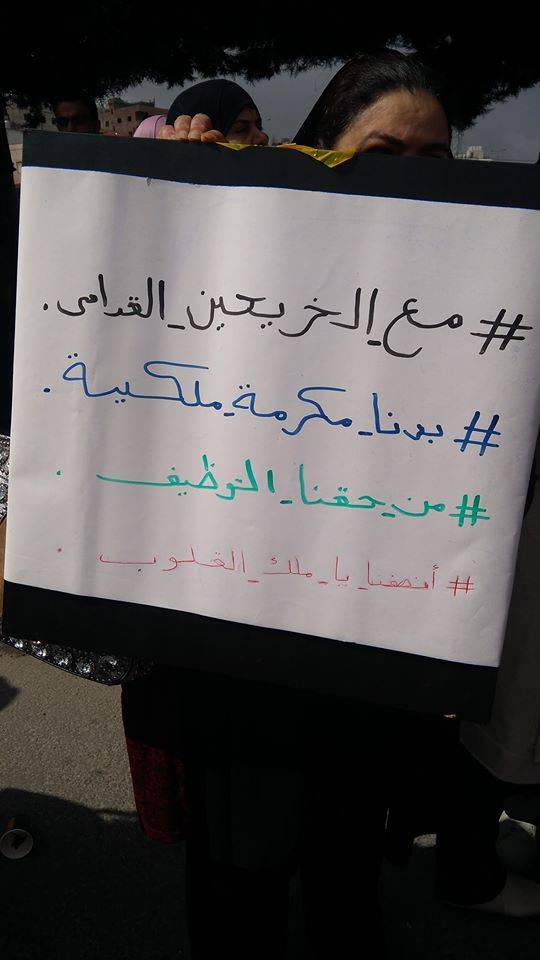 # مع_الخريجين_القدامى.
# بدنا_مكرمة_ملكية.
# من_حقنا_التوظيف.
# أنصفنا_يا_ملك_القلوب.